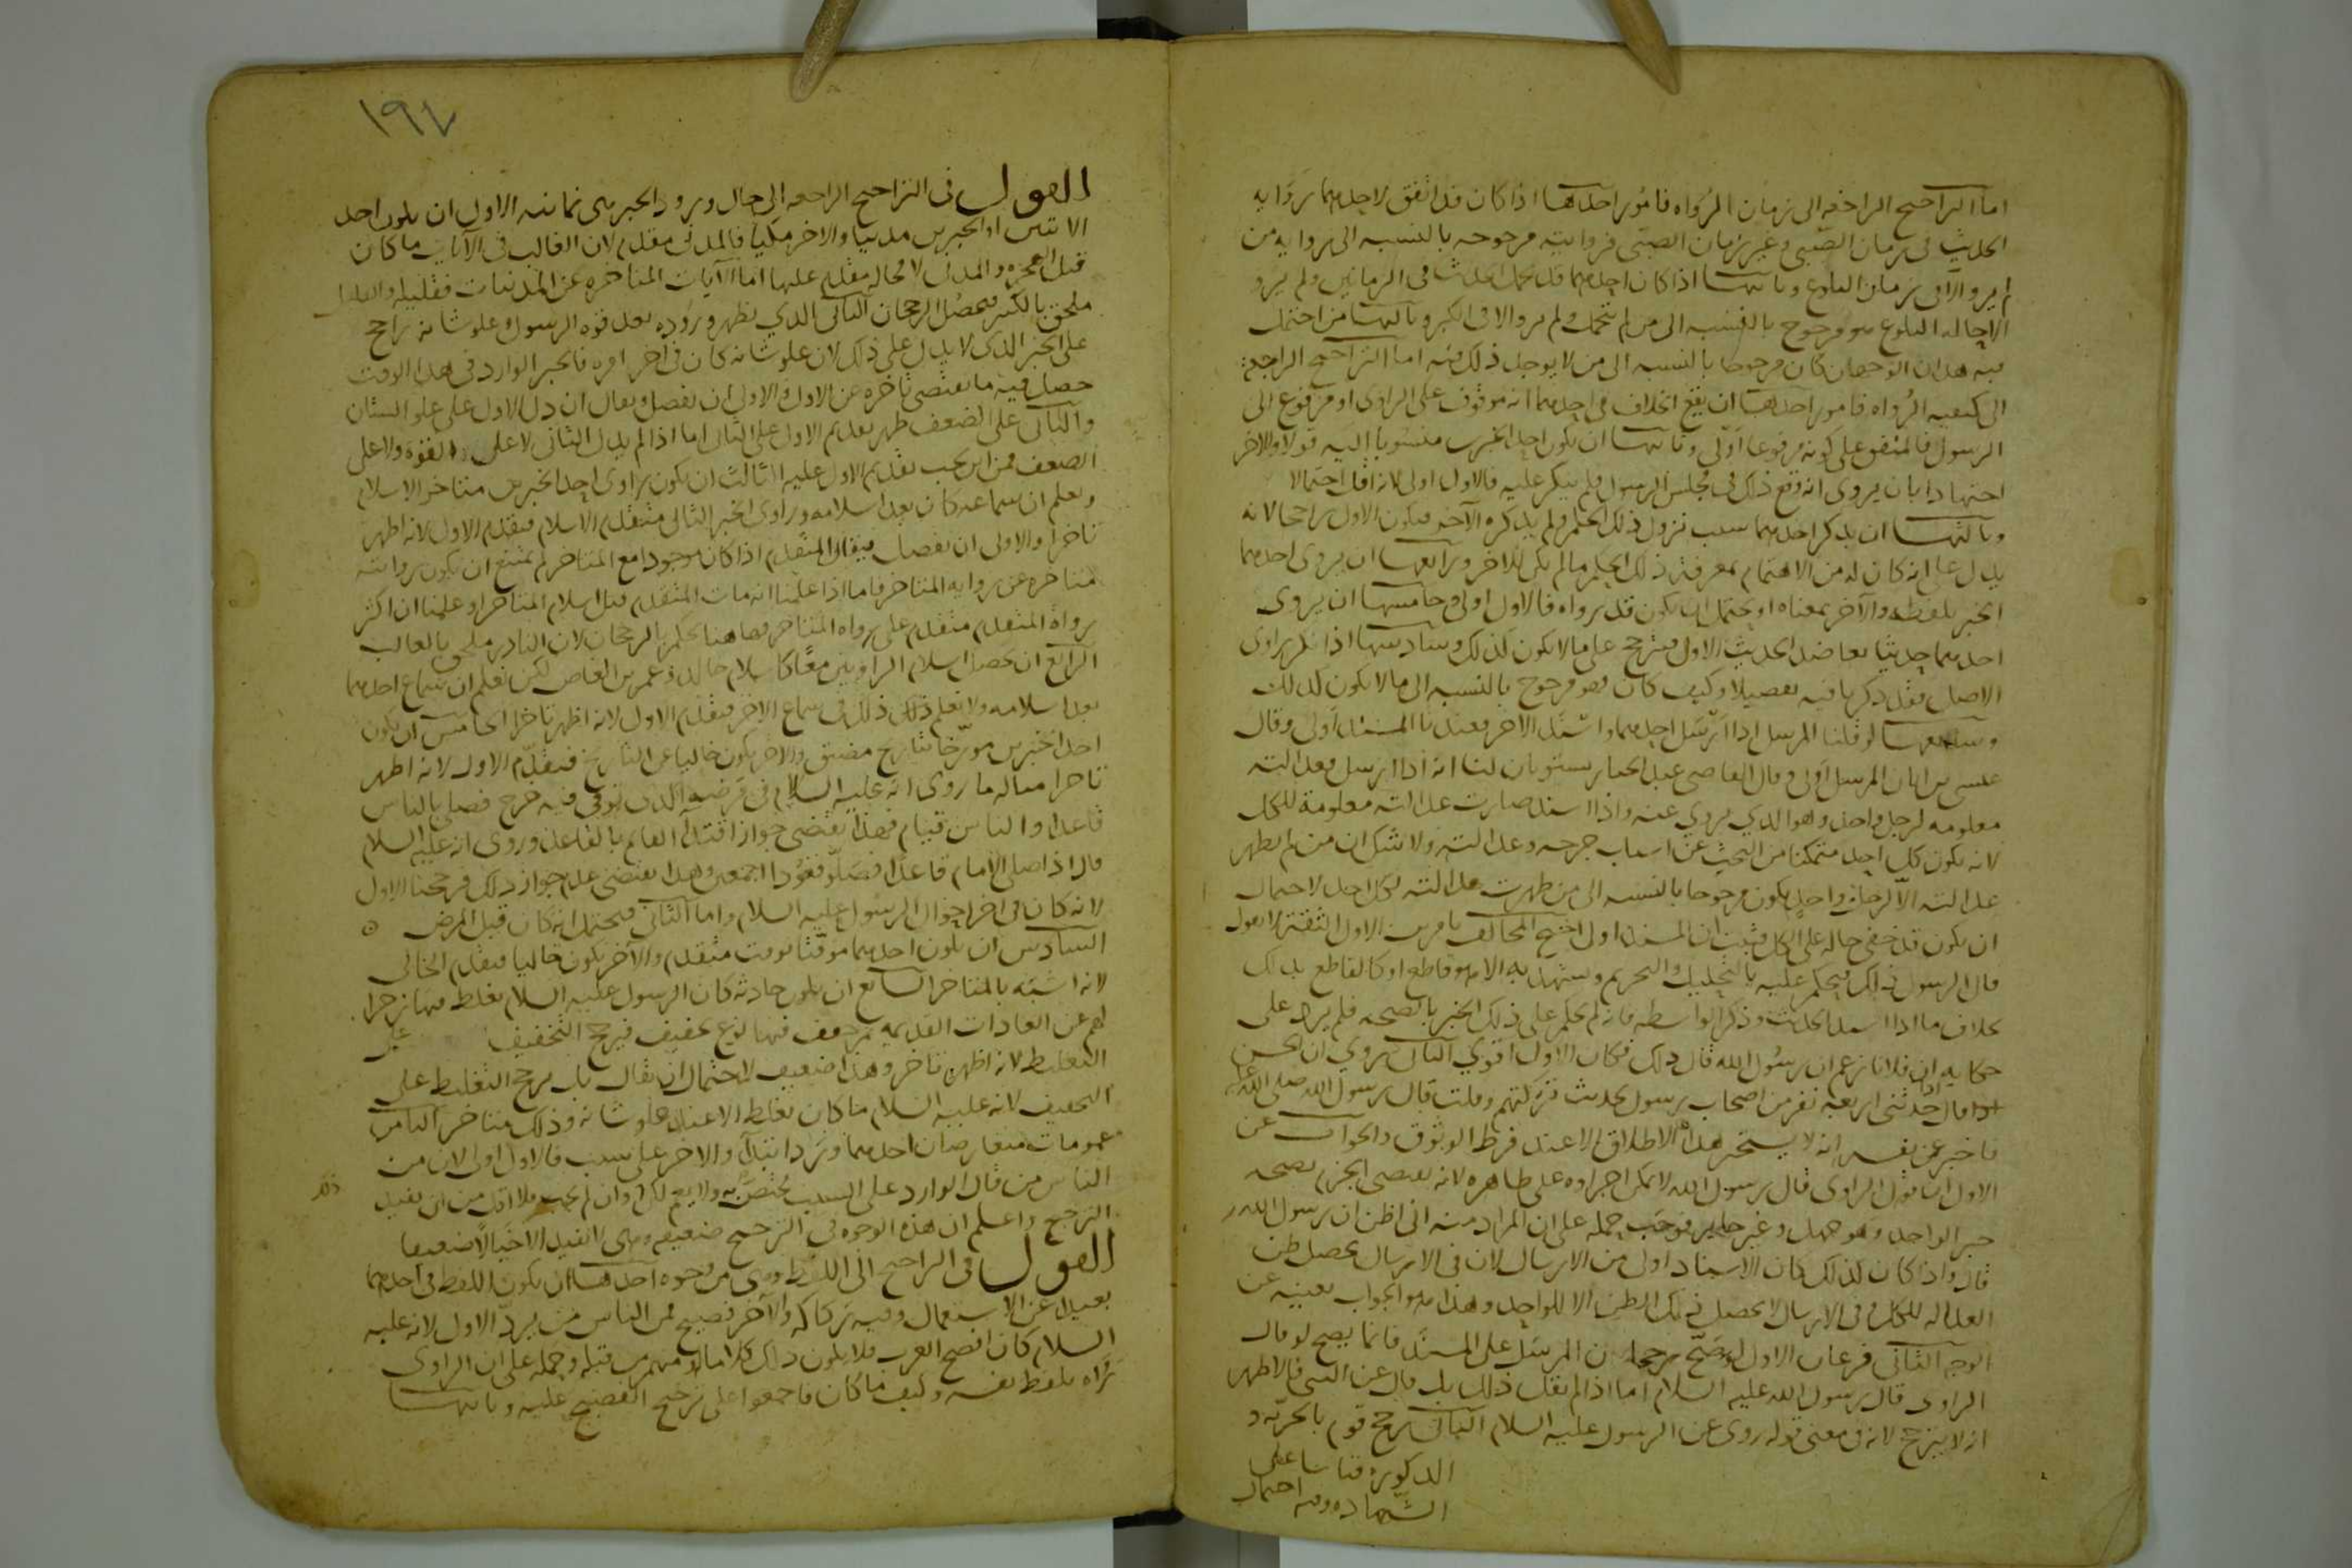 اما التراجيح الراجعه الى زمان الرواه فامور احدها اذا كان قد اتفق لاحدهما رواية
الحديث فى زمان الصبى وغير زمان الصبى فروايته مرجوحه بالنسبه الى رواية من
لم يرو الا فى زمان البلوغ وثانيها اذا كان احدهما قد تحمل الحديث فى الزمانين ولم يرو
الا حالة البلوغ فهو مرجوح بالنسبه الى من لم يتحمل ولم يرو الا فى الكبر وثالثها من احتمل
فيه هذان الوجهان كان مرجوحا بالنسبه الى من لا يوجد ذلك فيه اما التراجيح الراجعة
الى كيفيه الرواه فامور احدها ان يقع الخلاف فى احدهما انه موقوف على الراوى او مرفوع الى
الرسول فالمتفق على كونه مرفوعا اولى وثانيها ان يكون احد الخبرين منسوبا اليه قولا والاخر
اجتهادا بان يروى انه وقع ذلك فى مجلس الرسول فلم ينكر عليه فالاول اولى لانه اقل احتمالا
وثالثها ان يذكر احدهما سبب نزول ذلك الحكم ولم يذكره الآخر فيكون الاول راجحا لانه
يدل على انه كان له من الاهتمام بمعرفة ذلك الحكم ما لم يكن للاخر ورابعها ان يروى احدهما
الخبر بلفظه والآخر بمعناه او يحتمل ان يكون قد رواه فالاول اولى وخامسها ان يروى
احدهما حديثا يعاضد الحديث الاول فيترجح على ما لا يكون كذلك وسادسها اذا انكر راوى
الاصل فقد ذكرنا فيه تفصيلا وكيف كان فهو مرجوح بالنسبه الى ما لا يكون كذلك
وسابعها لو قبلنا المرسل اذا ارسل احدهما واسند الاخر فعندنا المسند اولى وقال
عيسى بن ابان المرسل اولى وقال القاضى عبد الجبار يستويان لنا انه اذا ارسل فعدالته
معلومه لرجل واحد وهو الذي يروي عنه واذا اسند صارت عدالته معلومة للكل
لانه يكون كل احد متمكنا من البحث عن اسباب جرحه وعدالته ولا شك ان من لم يظهر
عدالته الا لرجل واحد يكون مرجوحا بالنسبه الى من ظهرت عدالته لكل احد لاحتمال
ان يكون قد خفى حاله على الكل فثبت ان المسند اولى احتج المخالف بامرين الاول الثقة لا يقول
قال الرسول ذلك فيحكم عليه بالتحليل والتحريم ويشهد به الا وهو قاطع او كالقاطع بذلك
بخلاف ما اذا اسند الحديث وذكر الواسطه فانه لم يحكم على ذلك الخبر بالصحه فلم يزد على
حكايه ان فلانا زعم ان رسول الله قال ذلك فكان الاول اقوي الثانى روي ان الحسن
قال اذا حدثنى اربعة نفر من اصحاب رسول بحديث تركتهم وقلت قال رسول الله صلى الله عليه
فاخبر عن نفسه انه لا يستجيز هذا الاطلاق الا عند فرط الوثوق والجواب عن
الاول ان قول الراوى قال رسول الله لا يمكن اجراوه على ظاهره لانه يقتضى الجزم بصحه
خبر الواحد وهو جهل وغير جايز فوجب حمله على ان المراد منه انى اظن ان رسول الله
قال واذا كان كذلك كان الاسناد اولى من الارسال لان فى الاسناد يحصل ظن
العداله للكل وفى الارسال لا يحصل ذلك الظن الا للواحد وهذا هو الجواب بعينه عن
الوجه الثانى فرعان الاول لو صح رجحان المرسل على المسند فانما يصح لو قال
الراوى قال رسول الله عليه السلام اما اذا لم يقل ذلك بل قال عن النبى فالاظهر
انه لا يترجح لانه فى معنى قوله روى عن الرسول عليه السلام الثانى رجح قوم بالحريه و
الذكوره قياسا على
الشهاده وفيه احتمال
١٩٧
القول فى التراجيح الراجعه الى حال ورود الخبر وهى ثمانيه الاول ان يكون احد
الايتين او الخبرين مدنيا والاخر مكيا فالمدنى مقدم لان الغالب فى الآيات ما كان
قبل الهجره والمدنى لا محاله مقدم عليها اما الآيات المتاخره عن المدنيات فقليله والقليل
ملحق بالكثير فيحصل الرجحان الثانى الذي يظهر وروده بعد قوه الرسول وعلو شانه راجح
على الخبر الذى لا يدل على ذلك لان علو شانه كان فى اخر امره فالخبر الوارد فى هذا الوقت
حصل فيه ما يقتضى تاخره عن الاول والاولى ان نفصل ويقال ان دل الاول على علو الشان
والثانى على الضعف ظهر تقديم الاول على الثانى اما اذا لم يدل الثانى لا على القوة ولا على
الضعف فمن اين يجب تقديم الاول عليه الثالث ان يكون راوى احد الخبرين متاخر الاسلام
ويعلم ان سماعه كان بعد اسلامه وراوى الخبر الثانى متقدم الاسلام فيقدم الاول لانه اظهر
تاخرا والاولى ان نفصل فيقال المتقدم اذا كان موجودا مع المتاخر لم يمتنع ان يكون روايته
متاخره عن روايه المتاخر فاما اذا علمنا انه مات المتقدم قبل اسلام المتاخر او علمنا ان اكثر
رواة المتقدم متقدم على رواه المتاخر فهاهنا يحكم بالرجحان لان النادر ملحق بالغالب
الرابع ان يحصل اسلام الراويين معا كاسلام خالد وعمرو بن العاص لكن نعلم ان سماع احدهما
بعد اسلامه ولا نعلم ذلك فى سماع الاخر فيقدم الاول لانه اظهر تاخرا الخامس ان يكون
احد الخبرين مورخا بتاريخ مضيق والاخر يكون خاليا عن التاريخ فيقدم الاول لانه اظهر
تاخرا مثاله ما روى انه عليه السلام فى مرضه الذى توفى فيه خرج فصلى بالناس
قاعدا والناس قيام فهذا يقتضى جواز اقتداء القائم بالقاعد وروى انه عليه السلام
قال اذا صلى الامام قاعدا فصلوا قعودا اجمعين وهذا يقتضى عدم جواز ذلك فرجحنا الاول
لانه كان فى اخر احوال الرسول عليه السلام واما الثانى فيحتمل انه كان قبل المرض
السادس ان يكون احدهما موقتا بوقت متقدم والآخر يكون خاليا فيقدم الخالى
لانه اشبه بالمتاخر السابع ان يكون حادثه كان الرسول عليه السلام يغلظ فيها زجرا
لهم عن العادات القديمه ثم خفف فيها نوع تخفيف فيرجح التخفيف على
التغليظ لانه اظهر تاخر وهذا ضعيف لاحتمال ان يقال بل يرجح التغليظ على
التخفيف لانه عليه السلام ما كان يغلظ الا عند علو شانه وذلك متاخر الثامن
عمومات متعارضان احدهما ورد ابتداء والاخر على سبب فالاول اولى لان من
الناس من قال الوارد على السبب يختص به ولا يعم لكل وان لم يجب فلا اقل من ان يفيد
الترجيح واعلم ان هذه الوجوه فى الترجيح ضعيفه وهى لا تفيد الا خيالا ضعيفا
القول فى التراجيح الى اللفظ وهى من وجوه احدها ان يكون اللفظ فى احدهما
بعيدا عن الاستعمال وفيه ركاكه والآخر فصيح فمن الناس من يرد الاول لانه عليه
السلام كان افصح العرب فلا يكون ذلك كلاما له ومنهم من قبله وحمله على ان الراوى
رواه بلفظ نفسه وكيف ما كان فاجمعوا على ترجيح الفصيح عليه وثانيها